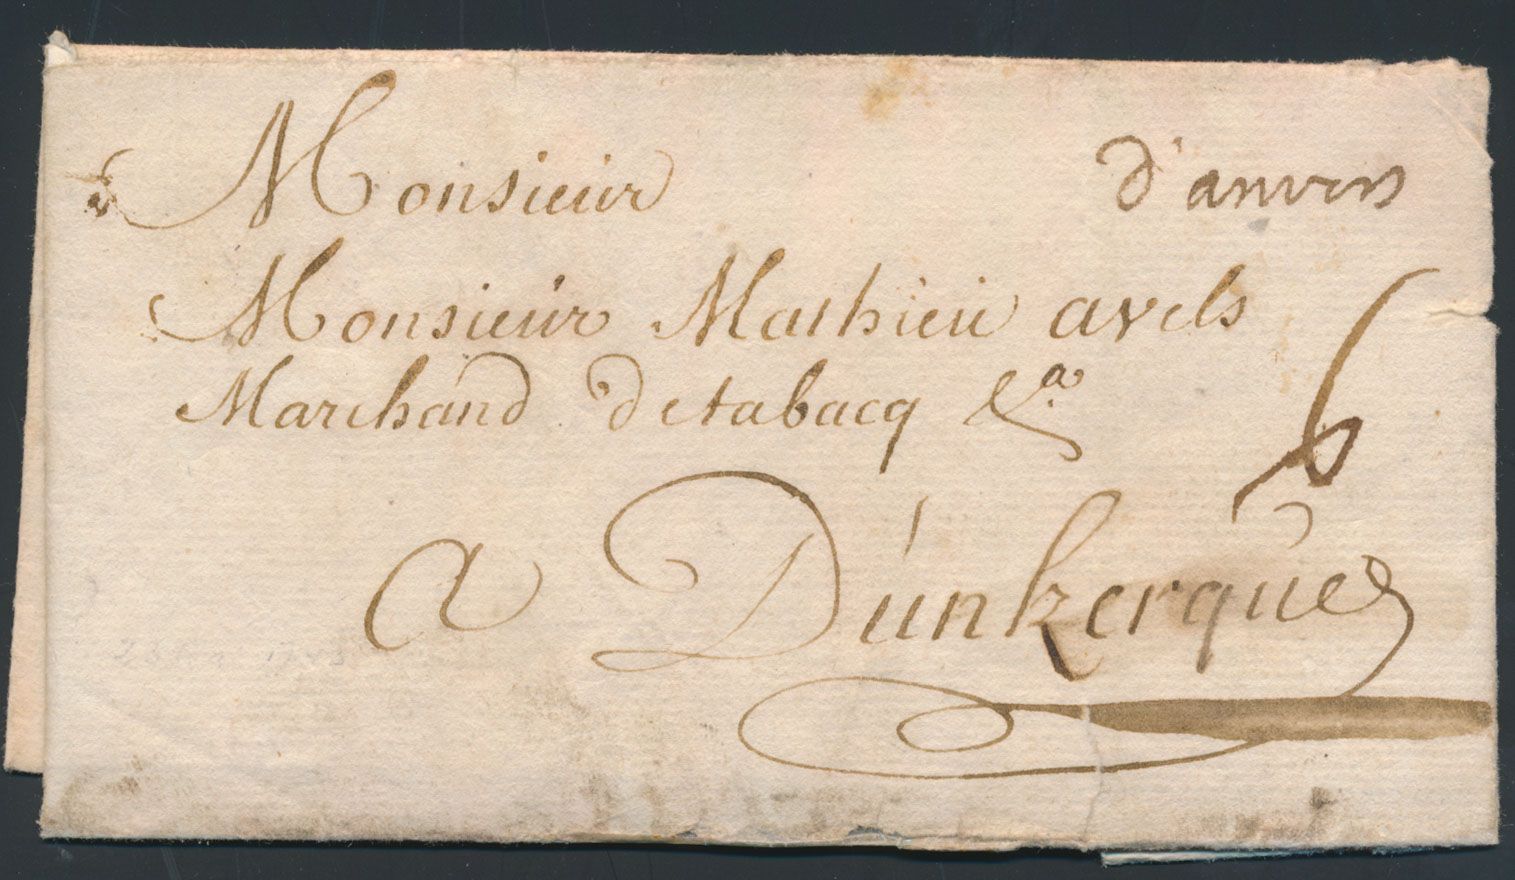 Monsieur
d'anvers
Monsieur Mathieu avels
Marchand de tabacq &a
6
a Dunkerque